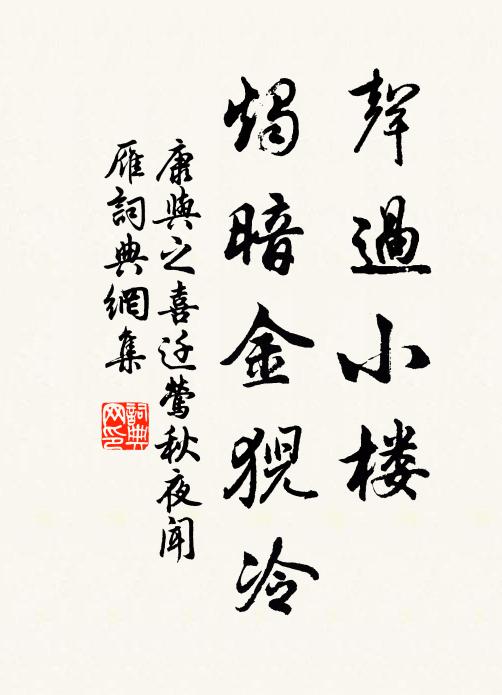 聲過小楼
燭暗金猊冷
康與之喜迁鶯秋夜聞
雁詞典網集
詞典
网印